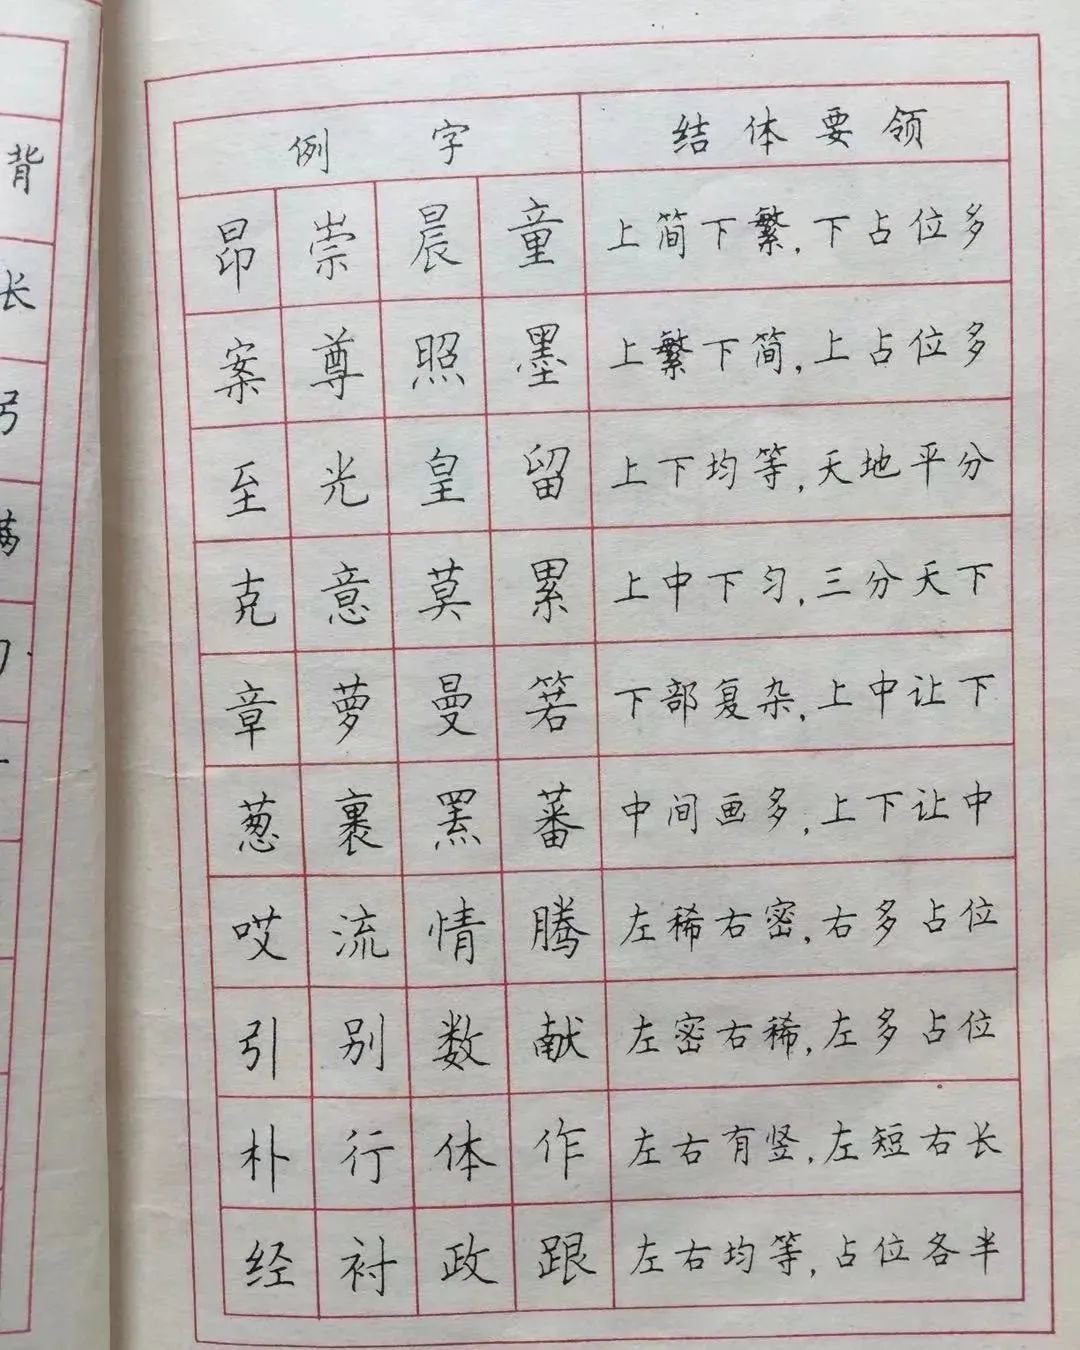 背
长
弓
满
例字 结体要领
昂 崇 晨 童 上简下繁,下占位多
案 尊 照 墨 上繁下简,上占位多
至 光 皇 留 上下均等,天地平分
克 意 莫 累 上中下匀,三分天下
章 萝 曼 箬 下部复杂,上中让下
葱 裹 蕃 中间画多,上下让中
哎 流 情 腾 左稀右密,右多占位
引 别 数 献 左密右稀,左多占位
朴 行 体 作 左右有竖,左短右长
经 衬 政 跟 左右均等,占位各半